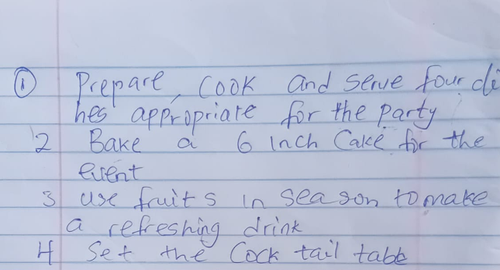 ① Prepare, cook and serve four di
hes appropriate for the party
2 Bake a 6 inch Cake for the
event
3 use fruits in season to make
a refreshing drink
4 Set the Cock tail table